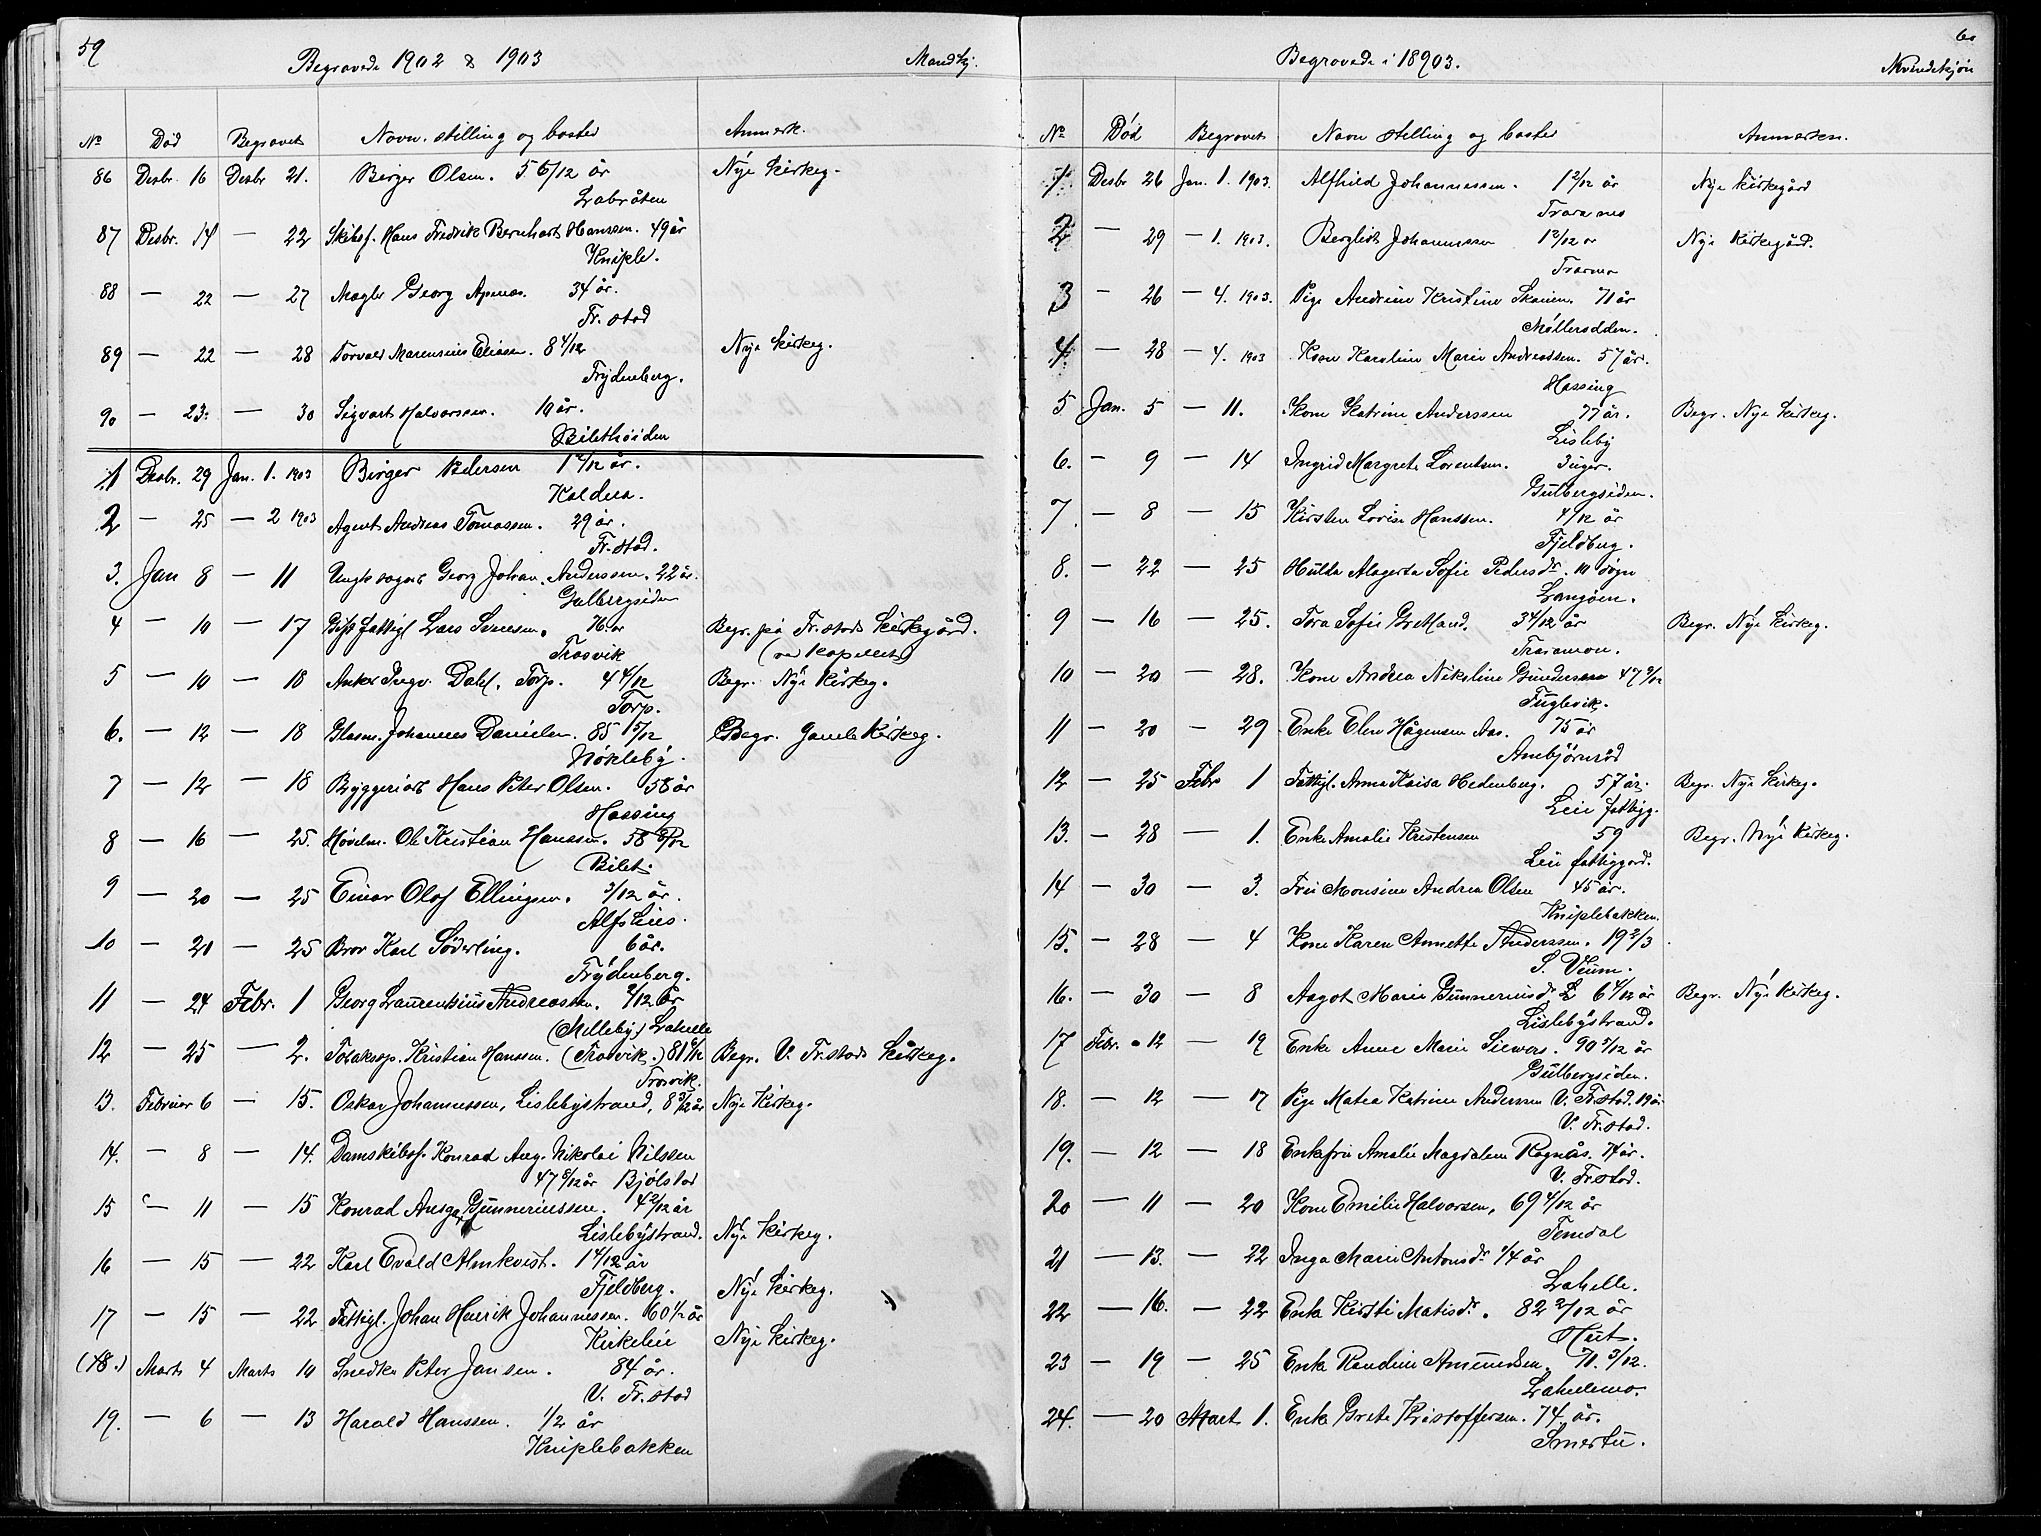 59
Begravede 1902 & 1903 Mandkj.
No Død Begravet Navn, stilling og bosted Anmerk.
86 Desbr. 16 Desbr 21. Birger Olsen. 5 6/12 år Nye Kirkeg.
Labråten
87 Desbr. 14 — 22 Skibsf. Hans Fredrik Bernhart Hanssen. 49 år
Kniple.
88 — 22 — 27 Mægler Georg Apenæs. 34 år.
Fr.stad
89 — 22 — 28 Torvald Marensius Eliasen. 8 4/12 Nye Kirkeg.
Frydenberg.
90 — 23. — 30 Sigvart Halvorsen. 19 år.
Bilethöiden
1 Desbr. 29 Jan. 1. 1903 Birger Pedersen 1 2/12 år.
Kaldera.
2 — 25 — 2 1903 Agent Andreas Tomassen. 29 år.
Fr.stad.
3. Jan 8 — 11 Georg Johan Anderssen. 22 år.
Gulbergsiden
4 — 10 — 17 fattigl Lars Svensen. 76 år Begr. på Fr.stads Kirkegård.
Trosvik (ved Kapellet)
5 — 10 — 18 Anker Ingv. Dahl. Torp. 4 4/12 Begr. Nye Kirkeg.
Torp.
6. — 12 — 18 Glasm. Johannes Danielsen. 85 5/12 Begr. Gamle Kirkeg.
Nökleby.
7 — 12 — 18 Byggeriarb Hans Peter Olsen. 58 år
Hassing
8 — 16 — 25. Høvelm. Ole Kristian Hanssen. 58 8/12
Bilet.
9 — 20 — 25 Einar Olaf Ellingsen. 3/12 år.
Alfslies.
10 — 20 — 25 Bror Karl Söderling. 6 år.
Frydenberg.
11 — 24 Febr. 1 Georg Laurentsius Andreassen. 2/12 år
(Melleby) Lahelle
12 — 25 — 2. Tobaksop. Kristian Hanssen. (Trosvik.) 81 6/12 Begr. V. Fr.stads Kirkeg.
Trosvik.
13. Februar 6 — 15. Oskar Johannessen, Lislebystrand, 8 3/12 år Nye Kirkeg.
14. — 8 — 14. Damskibsf. Konrad Aug. Nikolai Nilssen
47 8/12 år Bjölstad
15 — 11 — 15 Konrad Ansgar Gunneriussen. 4 2/12 år
Lislebystrand. Nye Kirkeg.
16 — 15 — 22 Karl Evald Almkvist. 1 4/12 år
Fjeldberg. Nye Kirkeg.
17 — 15 — 22 Fattigl. Johan Henrik Johannessen. 60 1/2 år
Kirkelie Nye Kirkeg.
(18.) Marts 4 Marts 10 Snedker Peter Jansen. 84 år.
V. Fr.stad
19. — 6 — 13 Harald Hanssen. 1/2 år
Kniplebakken
60
Begravede i 18903. Kvindekjøn
No Død Begravet Navn stilling og bosted Anmærkn.
1 Desbr 26 Jan. 1. 1903. Alfhild Johannessen. 1 2/12 år Nye Kirkegård
Traranes
2 — 29 — 1. 1903. Bergliot Johannessen 1 2/12 år Nye Kirkegård.
3 — 26 — 4. 1903. Pige Andrine Kristine Skauen. 71 år
Møllerodden.
4. — 28 — 4. 1903 Kone Karoline Marie Andreassen. 57 år.
Hassing
5 Jan. 5 — 11. Kone Katrine Anderssen 77 år. Begr. Nye Kirkeg.
Lisleby
6. — 9 — 14 Ingrid Margrete Lorentsen. 3 uger.
Gulbergsiden.
7 — 8 — 15 Kirsten Lovise Hanssen. 4/12 år
Fjeldberg.
8. — 22 — 25 Hulda Alagerta Sofie Pedersdr. 10 døgn
Langøen.
9 — 16 — 25. Tora Sofie Gretland. 3 4/12 år Begr. Nye Kirkeg.
10 — 20 — 28. Kone Andrea Nikoline Gundersen 47 9/12
Fuglevik.
11 — 20 — 29 Enke Elen Hågensen Aas. 75 år
Ambjørnrød
12 — 25 Febr 1 Fattigl. Anna Kaisa Hedenberg. 57 år. Begr. Nye Kirkeg.
Leie fattigg.
13. — 28 — 1. Enke Amalie Kristensen 59 Begr. Nye Kirkeg.
Leie fattiggård.
14 — 30 — 3. Frii Monsine Andrea Olsen 45 år.
Kniplebakken.
15. — 28 — 4 Kone Karen Annette Anderssen. 19 2/3
S. Veum.
16. — 30 — 8 Aagot Marie Gunneriusdr. 6 4/12 år Begr. Nye Kirkeg.
Lislebystrand.
17 Febr. 12 — 19 Enke Anne Marie Siewers. 90 5/12 år
Gulbergsiden.
18. — 12 — 17 Pige Matea Katrine Anderssen V. Fr.stad. 19 år.
V. Fr.stad.
19. — 12 — 18 Enkefru Amalie Magdalene Rognås. 74 år.
V. Fr.stad.
20 — 11 — 20 Kone Emilie Halvorsen, 69 4/12 år
Temdal
21 — 13. — 22 Inga Marie Antonsdr. 1/4 år
Lahelle.
22 — 16. — 22 Enke Kirsti Matisdr. 82 2/12 år
Hut.
23 — 19 — 25 Enke Randine Amundsen. 71. 3/12.
Lahellemo.
24. — 20 Mart 1. Enke Grete Kristoffersen. 74 år.
Smertu.